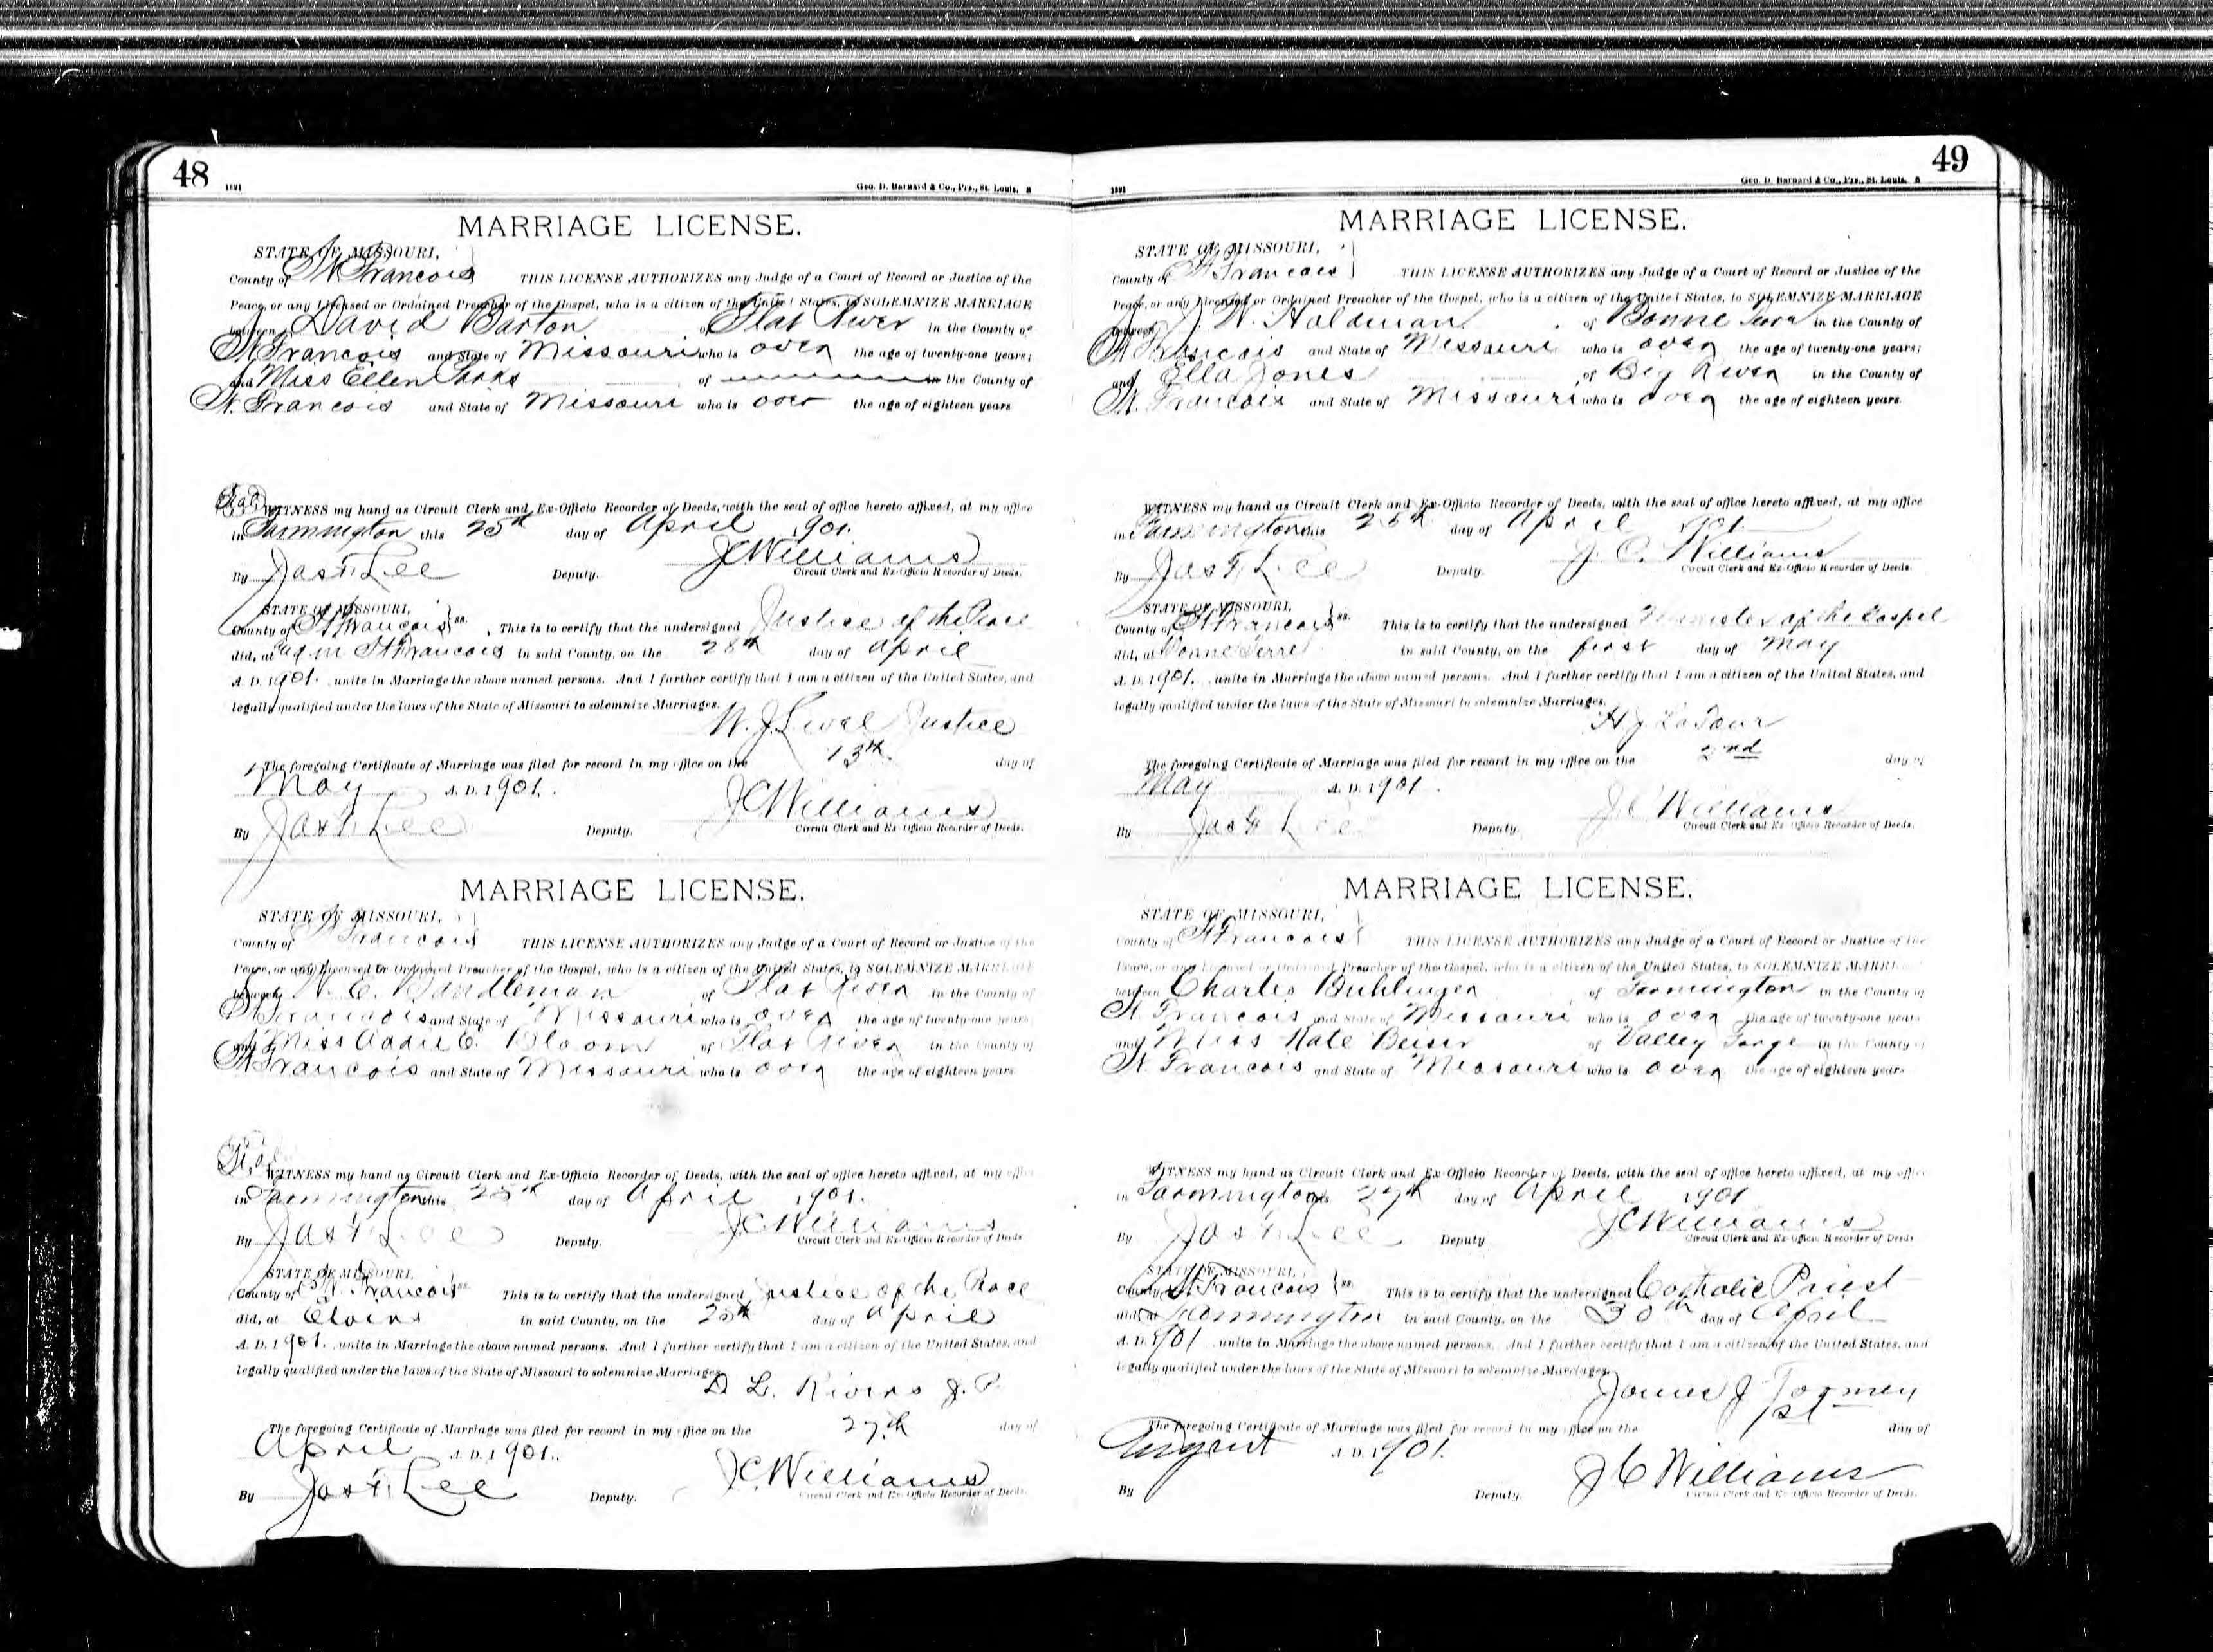 48
1891
Geo. D. Barnard & Co., Prs., St. Louis. 8
MARRIAGE LICENSE.
STATE OF MISSOURI,
County of St Francois THIS LICENSE AUTHORIZES any Judge of a Court of Record or Justice of the
Peace, or any Licensed or Ordained Preacher of the Gospel, who is a citizen of the United States, to SOLEMNIZE MARRIAGE
between David Barton of Flat River in the County of
St Francois and State of Missouri who is over the age of twenty-one years;
and Miss Ellen of in the County of
St. Francois and State of Missouri who is over the age of eighteen years
Seal
WITNESS my hand as Circuit Clerk and Ex-Officio Recorder of Deeds, with the seal of office hereto affixed, at my office
in Farmington this 25th day of April 1901.
By Jas F. Lee Deputy. J C Williams
Circuit Clerk and Ex-Officio Recorder of Deeds.
STATE OF MISSOURI,
County of St Francois ss. This is to certify that the undersigned Justice of the Peace
did, at in St Francois in said County, on the 28th day of April
A. D. 1901. unite in Marriage the above named persons. And I further certify that I am a citizen of the United States, and
legally qualified under the laws of the State of Missouri to solemnize Marriages.
W. J. Justice
The foregoing Certificate of Marriage was filed for record in my office on the 13th day of
May A. D. 1901.
By Jas F. Lee Deputy. J C Williams
Circuit Clerk and Ex-Officio Recorder of Deeds.
MARRIAGE LICENSE.
STATE OF MISSOURI,
County of St Francois THIS LICENSE AUTHORIZES any Judge of a Court of Record or Justice of the
Peace, or any Licensed or Ordained Preacher of the Gospel, who is a citizen of the United States, to SOLEMNIZE MARRIAGE
between W. E. Bandleman of Flat River in the County of
St Francois and State of Missouri who is over the age of twenty-one years
and Miss Addie E. Bloom of Flat River in the County of
St Francois and State of Missouri who is over the age of eighteen years
Seal
WITNESS my hand as Circuit Clerk and Ex-Officio Recorder of Deeds, with the seal of office hereto affixed, at my office
in Farmington this 25th day of April 1901.
By Jas F. Lee Deputy. J C Williams
Circuit Clerk and Ex-Officio Recorder of Deeds
STATE OF MISSOURI,
County of St. Francois ss. This is to certify that the undersigned Justice of the Peace
did, at Elvins in said County, on the 25th day of April
A. D. 1901. unite in Marriage the above named persons. And I further certify that I am a citizen of the United States, and
legally qualified under the laws of the State of Missouri to solemnize Marriages.
D L. Rivers J. P.
The foregoing Certificate of Marriage was filed for record in my office on the 27th day of
April A. D. 1901.
By Jas F. Lee Deputy. J C Williams
Circuit Clerk and Ex-Officio Recorder of Deeds.
49
1891
Geo. D. Barnard & Co., Prs., St. Louis. 8
MARRIAGE LICENSE.
STATE OF MISSOURI,
County of St Francois THIS LICENSE AUTHORIZES any Judge of a Court of Record or Justice of the
Peace, or any Licensed or Ordained Preacher of the Gospel, who is a citizen of the United States, to SOLEMNIZE MARRIAGE
between J. W. Haldman of Bonne Terre in the County of
St Francois and State of Missouri who is over the age of twenty-one years;
and Ella Jones of Big River in the County of
St. Francois and State of Missouri who is over the age of eighteen years.
WITNESS my hand as Circuit Clerk and Ex-Officio Recorder of Deeds, with the seal of office hereto affixed, at my office
in Farmington this 25th day of April 1901.
By Jas F. Lee Deputy. J. C. Williams
Circuit Clerk and Ex-Officio Recorder of Deeds.
STATE OF MISSOURI,
County of St Francois ss. This is to certify that the undersigned Minister of the Gospel
did, at Bonne Terre in said County, on the first day of May
A. D. 1901. unite in Marriage the above named persons. And I further certify that I am a citizen of the United States, and
legally qualified under the laws of the State of Missouri to solemnize Marriages.
H J. LaTour
The foregoing Certificate of Marriage was filed for record in my office on the 2nd day of
May A. D. 1901.
By Jas F Lee Deputy. J C Williams
Circuit Clerk and Ex-Officio Recorder of Deeds.
MARRIAGE LICENSE.
STATE OF MISSOURI,
County of St Francois THIS LICENSE AUTHORIZES any Judge of a Court of Record or Justice of the
Peace, or any Licensed or Ordained Preacher of the Gospel, who is a citizen of the United States, to SOLEMNIZE MARRI
between Charlie Buhlinger of Farmington in the County of
St Francois and State of Missouri who is over the age of twenty-one years
and Miss Kate Beiser of Valley Forge in the County of
St Francois and State of Missouri who is over the age of eighteen years
WITNESS my hand as Circuit Clerk and Ex-Officio Recorder of Deeds, with the seal of office hereto affixed, at my office
in Farmington this 27th day of April 1901
By Jas F. Lee Deputy. J C Williams
Circuit Clerk and Ex-Officio Recorder of Deeds
STATE OF MISSOURI,
County of St Francois ss. This is to certify that the undersigned Catholic Priest
did, at Farmington in said County, on the 30th day of April
A. D. 1901 unite in Marriage the above named persons. And I further certify that I am a citizen of the United States, and
legally qualified under the laws of the State of Missouri to solemnize Marriages.
James J Toomey
The foregoing Certificate of Marriage was filed for record in my office on the 1st day of
August A. D. 1901.
By Deputy. J C Williams
Circuit Clerk and Ex-Officio Recorder of Deeds.